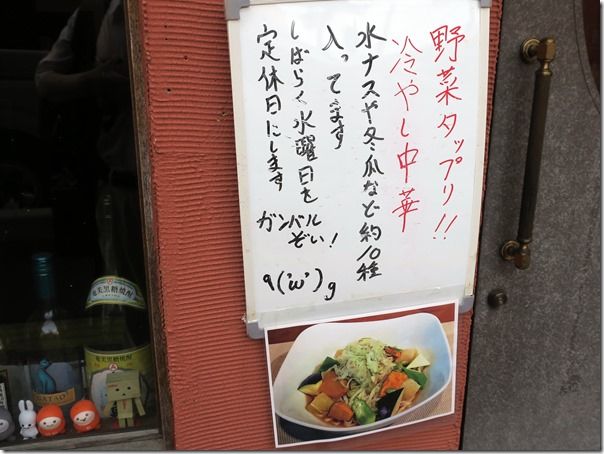 野菜タップリ!!
冷やし中華
水ナスや冬瓜など約10種
入ってます
しばらく水曜日を
定休日にします
ガンバル
ぞい!
q('ω')g
奄美黒糖焼酎
GATAO